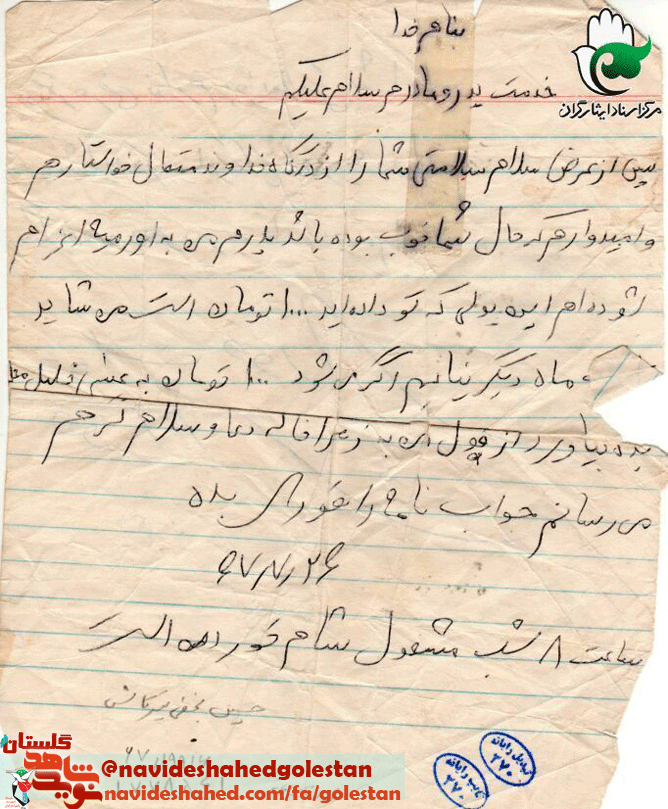 بنام خدا
خدمت پدر و مادرم سلام علیکم
مرکز اسناد ایثارگران
پس از عرض سلام سلامتی شما را از درگاه خداوند متعال خواستارم
و امیدوارم که حال شما خوب بوده باشد پدرم من به ارومیه اعزام
شوده‌ام این پولی که تو داده‌اید ۱۰۰۰ تومان است من شاید
ماه دیگر نیایم اگر می‌شود ۱۰۰ تومان به
بده بیاورد از قول من به زهرا خاله دعا و سلام گرم
می‌رسانم جواب نامه را فوری بده
۶۷/۷/۲۶
ساعت ۸ شب مشغول شام خوردن است
حسین نجفی
تبدیل رایانه
۲۷۰
۲۷۰
نوید شاهد
گلستان
@navideshahedgolestan
navideshahed.com/fa/golestan